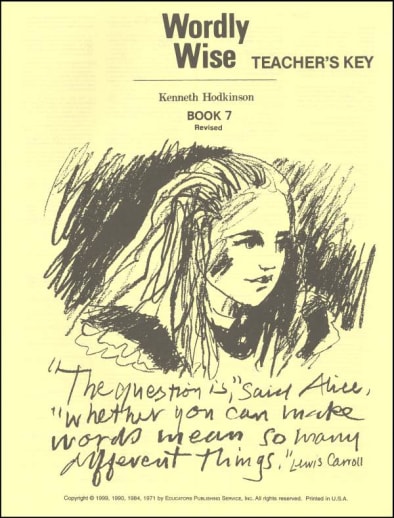 Wordly
Wise TEACHER'S KEY
Kenneth Hodkinson
BOOK 7
Revised
"The question is," said Alice,
"whether you can make
words mean so many
different things." Lewis Carroll
Copyright © 1999, 1990, 1984, 1971 by EDUCATORS PUBLISHING SERVICE, INC. All rights reserved. Printed in U.S.A.